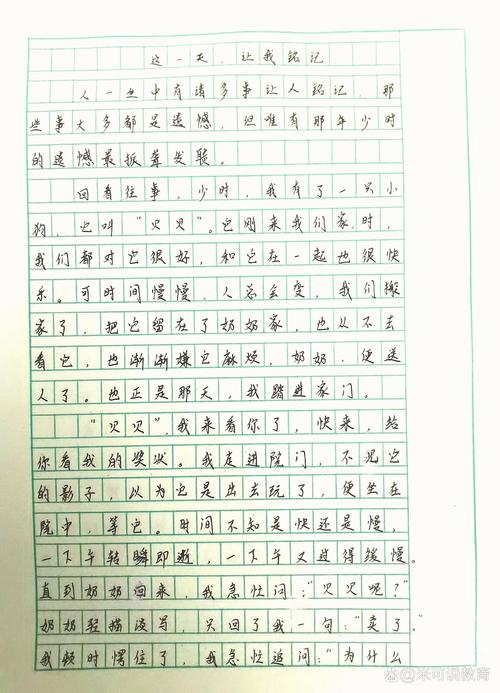 这一天，让我铭记
人一生中有诸多事让人铭记，那
些事大多都是遗憾，但唯有那年少时
的遗憾最振聋发聩。
回看往事，少时，我有了一只小
狗，它叫“贝贝”。它刚来我们家时，
我们都对它很好，和它在一起也很快
乐。可时间慢慢，人总会变，我们搬
家了，把它留在了奶奶家，也从不去
看它，也渐渐嫌它麻烦，奶奶，便送
人了。也正是那天，我踏进家门。
“贝贝”，我来看你了，快来，给
你看我的奖状。我走进院门，不见它
的影子，以为它是出去玩了，便坐在
院中，等它。时间不知是快还是慢，
一下午转瞬即逝，一下午又过得缓慢。
直到奶奶回来，我急忙问：“贝贝呢？”
奶奶轻描淡写，只回了我一句：“卖了。”
我顿时愣住了，我急忙追问：“为什么
@米可说教育